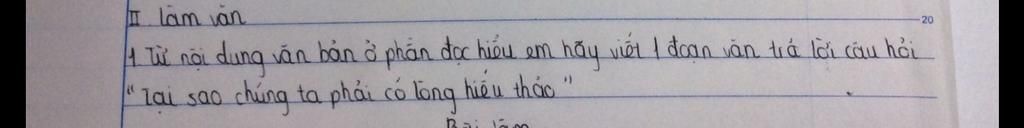 II làm văn
20
1 Từ nội dung văn bản ở phần đọc hiểu em hãy viết 1 đoạn văn trả lời câu hỏi
"Tại sao chúng ta phải có lòng hiếu thảo"
Bài làm